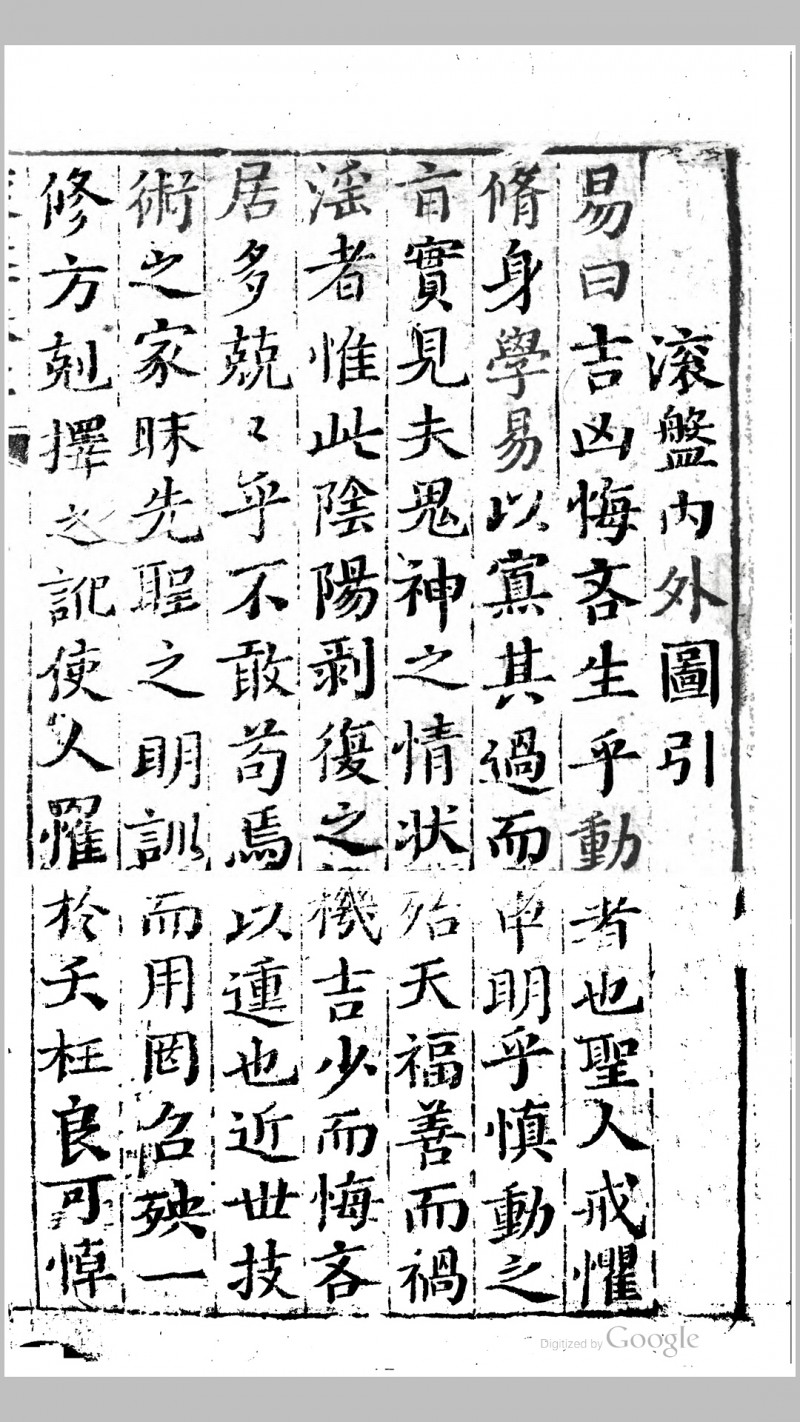 滚盤内外圖引
易曰吉凶悔吝生乎動者也聖人戒懼
脩身學易以寡其過而申明乎慎動之
旨實見夫鬼神之情状殆天福善而禍
滛者惟此陰陽剥復之機吉少而悔吝
居多兢〻乎不敢茍焉以運也近世技
術之家昧先聖之明訓而用罔召殃一
修方剋擇之訛使人罹於夭枉良可悼
Digitized by Google